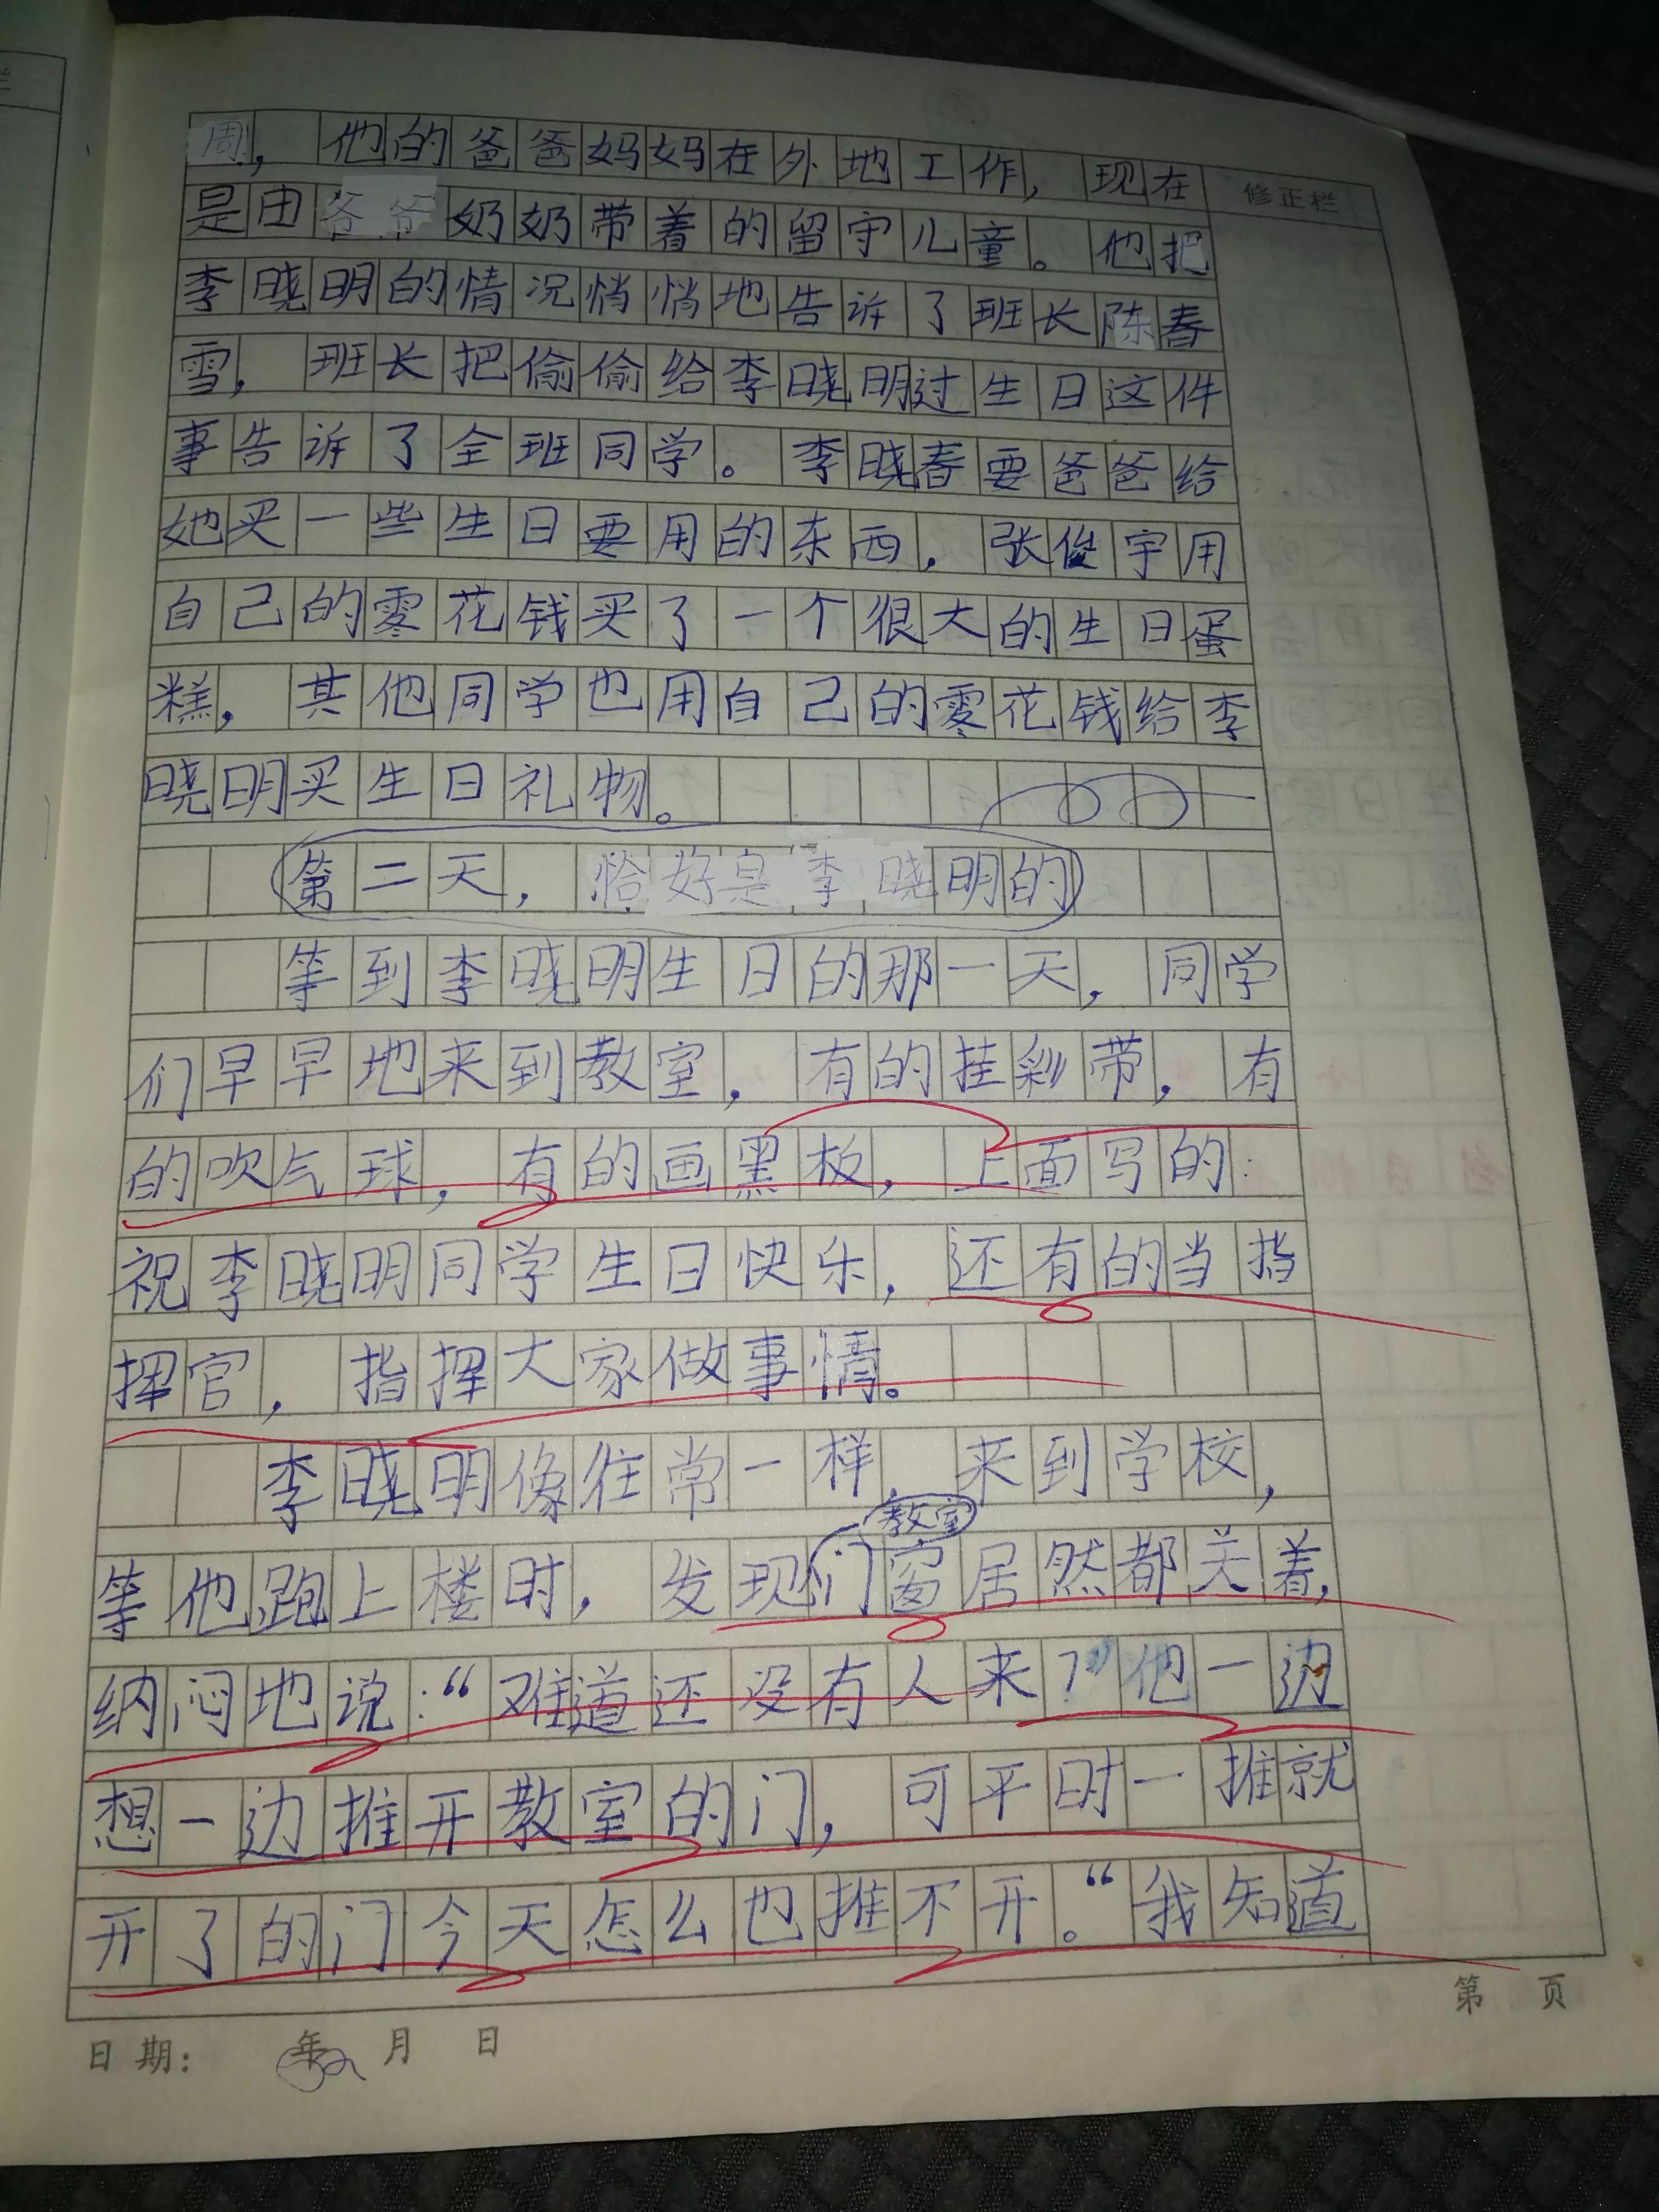 周，他的爸爸妈妈在外地工作，现在
修正栏
是由爷爷奶奶带着的留守儿童。他把
李晓明的情况悄悄地告诉了班长陈春
雪，班长把偷偷给李晓明过生日这件
事告诉了全班同学。李晓春要爸爸给
她买一些生日要用的东西，张俊宇用
自己的零花钱买了一个很大的生日蛋
糕，其他同学也用自己的零花钱给李
晓明买生日礼物。
第二天，恰好是李晓明的
等到李晓明生日的那一天，同学
们早早地来到教室，有的挂彩带，有
的吹气球，有的画黑板，上面写的：
祝李晓明同学生日快乐，还有的当指
挥官，指挥大家做事情。
李晓明像往常一样，来到学校，
教室
等他跑上楼时，发现门窗居然都关着，
纳闷地说：“难道还没有人来？”他一边
想一边推开教室的门，可平时一推就
开了的门今天怎么也推不开。“我知道
第 页
日期： 年 月 日